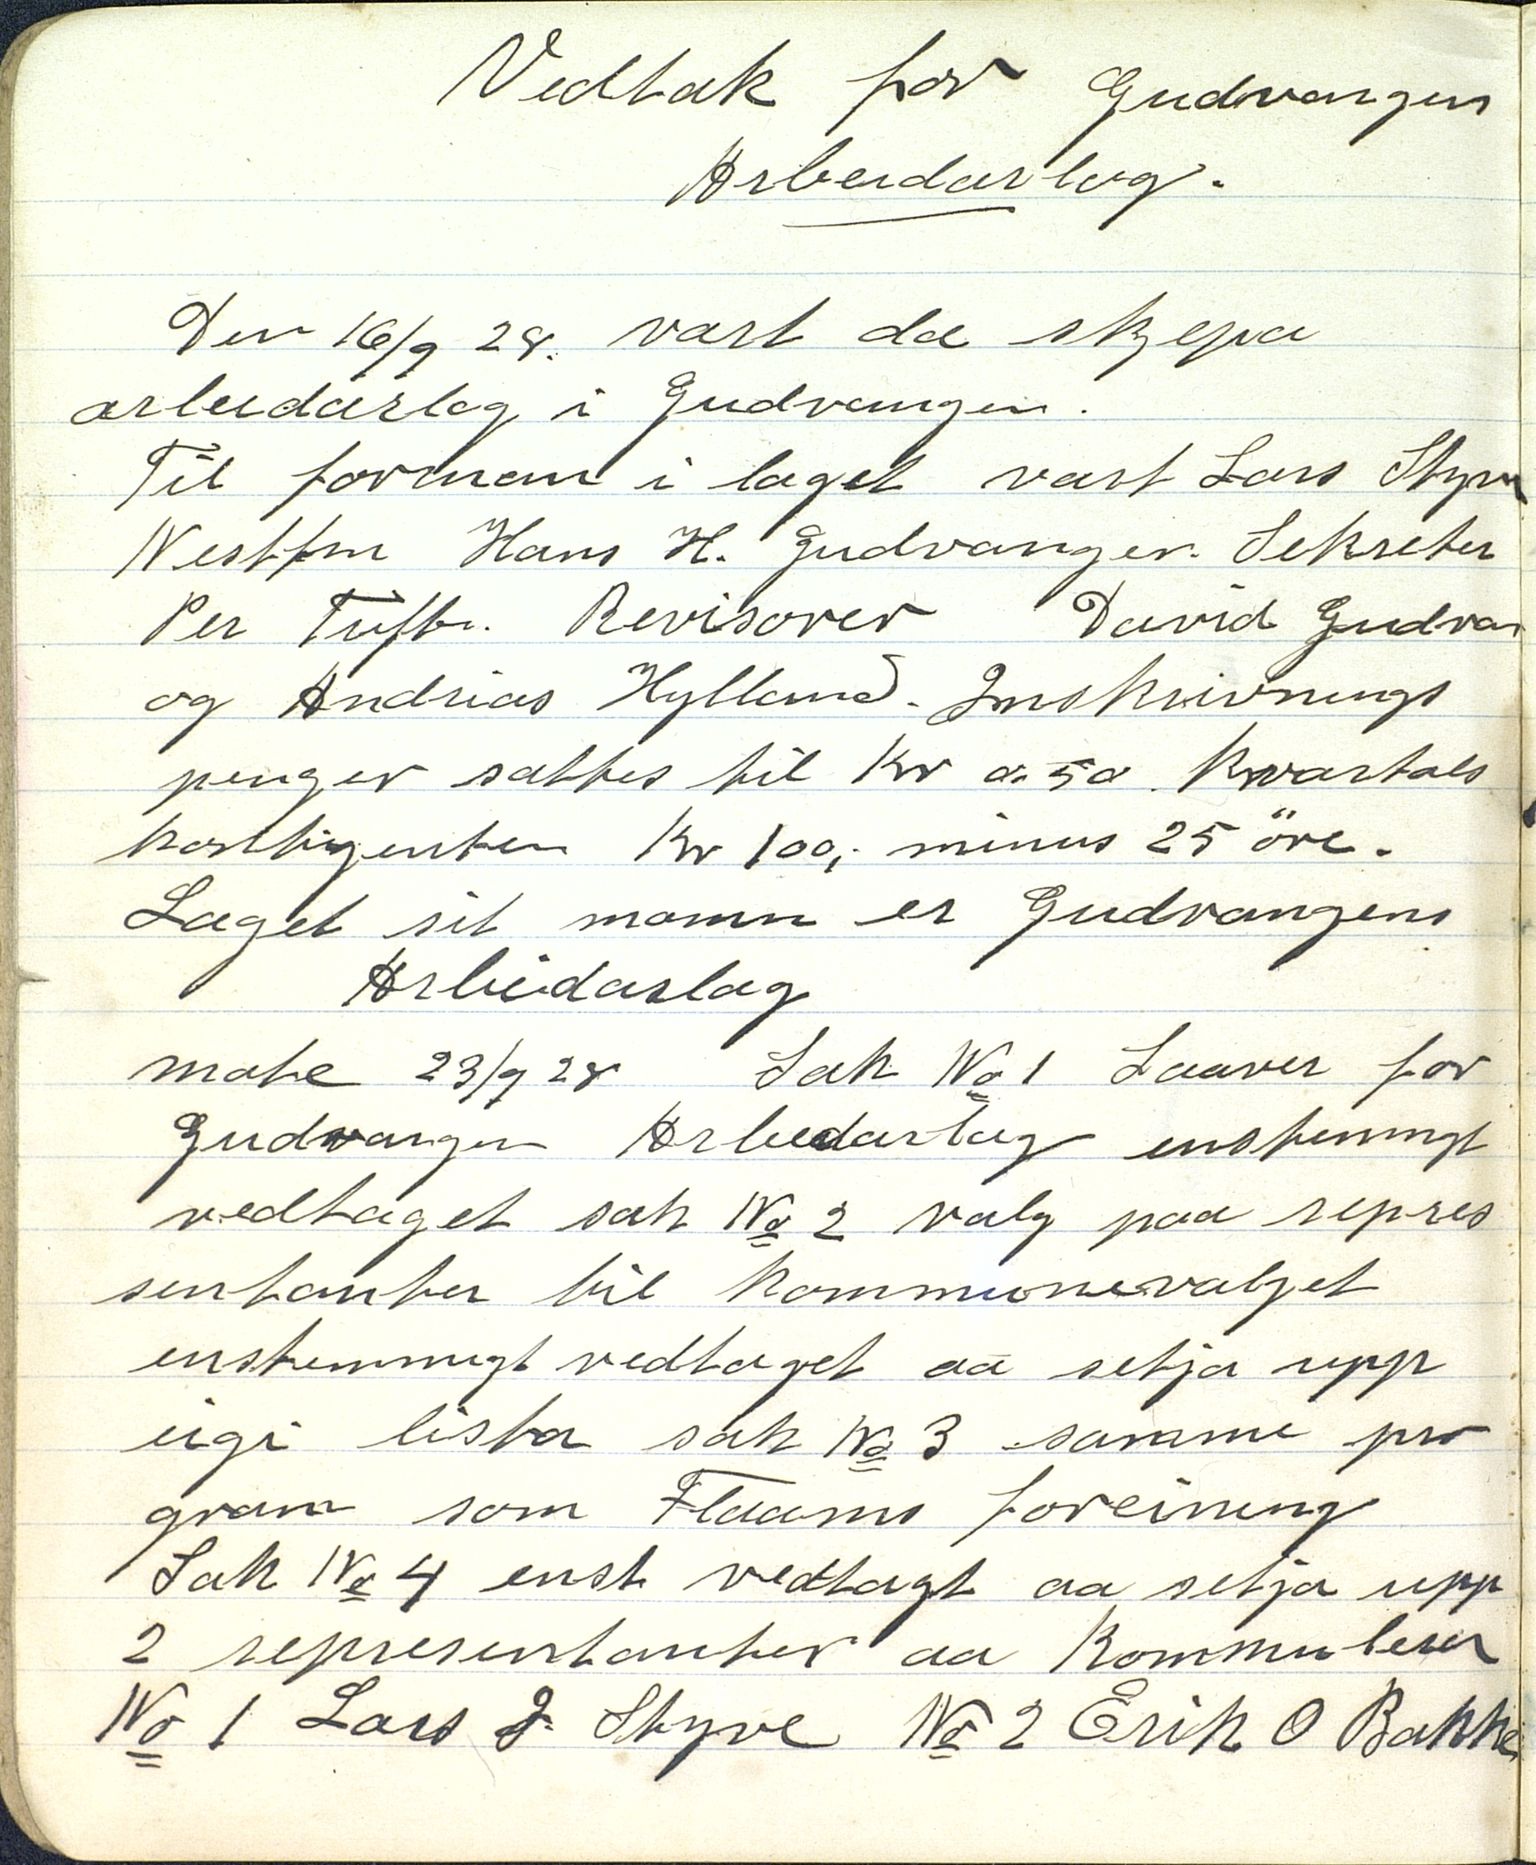 Vedtak for Gudvangen
Arbeidarlag.
Den 16/9 28. vart da skjepa
arbeidarlag i Gudvangen.
Til forman i laget vart Lars Styve
Nestfm Hans H. Gudvangen. Sekreter
Per Tufte. Revisorer David Gudvan
og Andrias Hylland. Innskrivnings
penger sattes til Kr 0.50. Kvartals
kontigenten Kr 1.00,- minus 25 öre.
Laget sit namn er Gudvangens
Arbeidarlag
møte 23/9 28 Sak No 1 Laaver for
Gudvangen Arbeidarlag enstemigt
vedtaget sak No 2 valg paa repres
sentanter til kommunevalget
enstemmigt vedtaget aa setja upp
eigi lista sak No 3 samme pro
gram som Flaams foreining
Sak No 4 enst vedtagt aa setja upp
2 representanter aa
No 1 Lars J. Styve No 2 Erik O Bakke